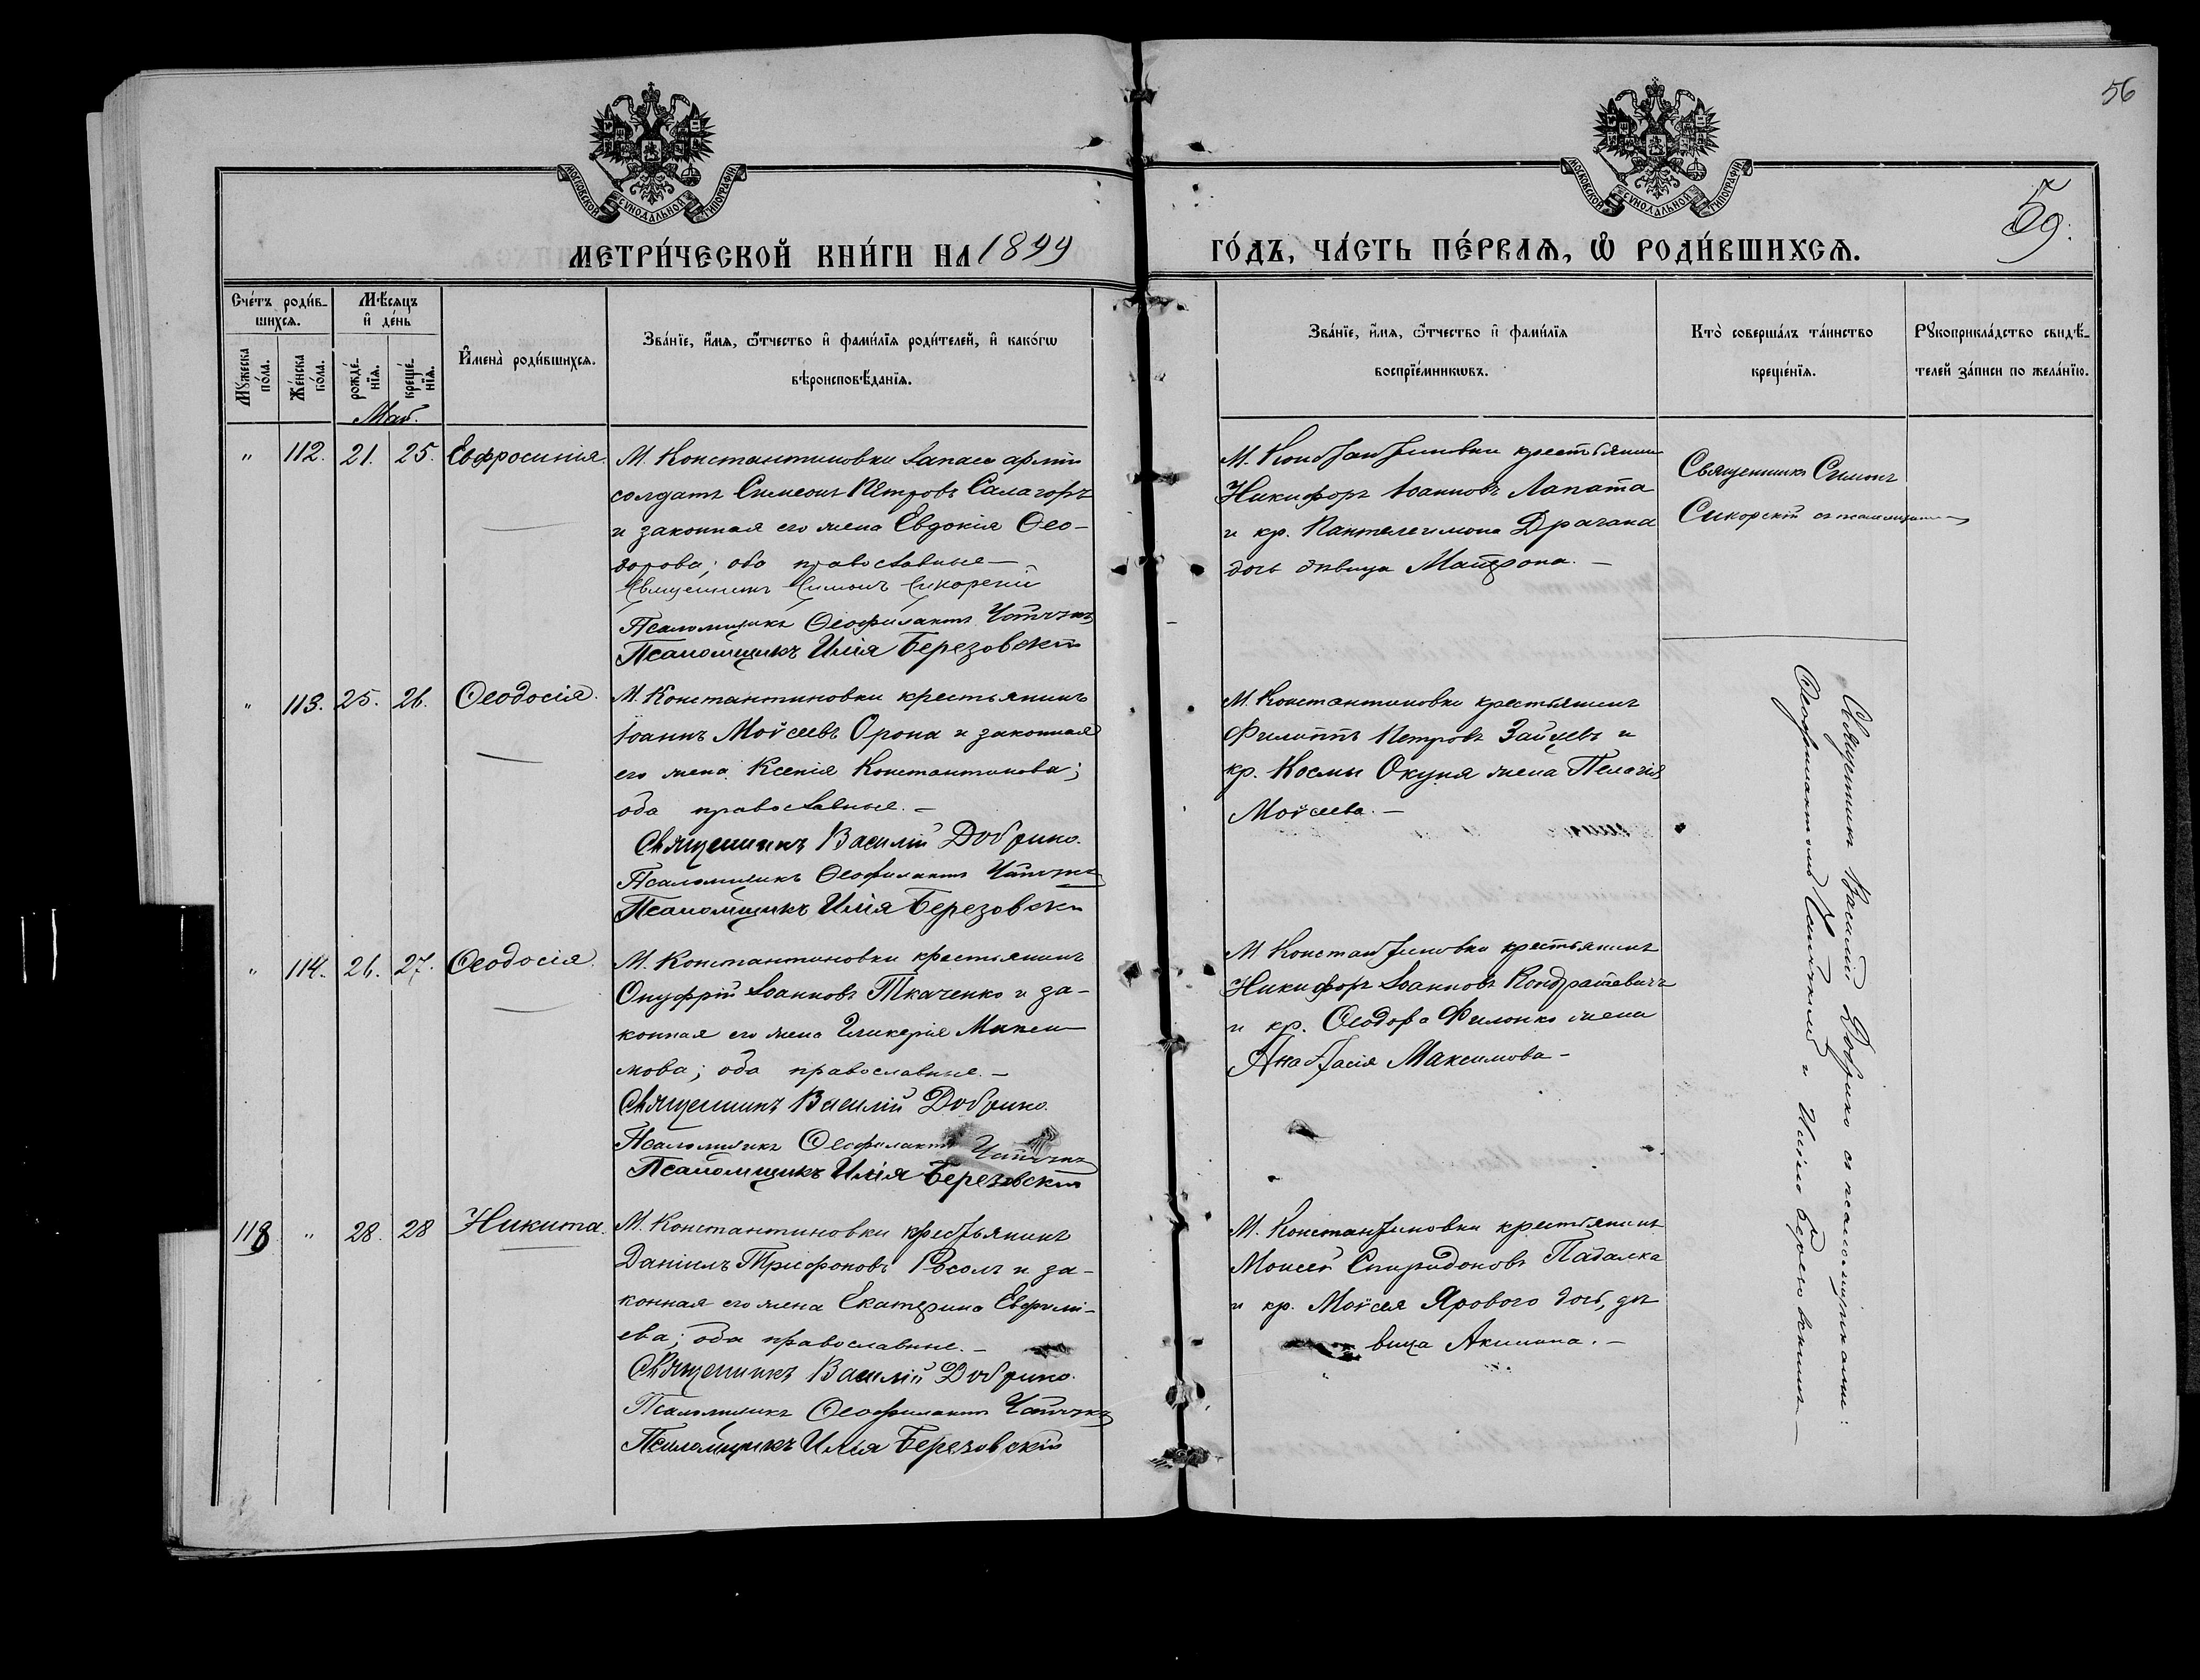 56
59.
МОСКОВСКОЙ СУНОДАЛЬНОЙ ТИПОГРАФІИ
МОСКОВСКОЙ СУНОДАЛЬНОЙ ТИПОГРАФІИ
МЕТРИ́ЧЕСКОЙ КНИ́ГИ НА 1899
ГО́ДЪ, ЧА́СТЬ ПЕ́РВАѦ, Ѡ РОДИ́ВШИХСѦ.
Сче́тъ роди́в-
шихсѧ.
Мꙋ́жеска по́ла.
Же́нска по́ла.
Мѣ́сѧцъ
и҆ де́нь
рожде́-
нїѧ.
креще́-
нїѧ.
Май.
И҆мена̀ роди́вшихсѧ.
Зва́нїе, и҆́мѧ, ѻ҆́тчество и҆ фами́лїѧ роди́телей, и҆ како́гѡ
вѣроисповѣ́данїѧ.
Зва́нїе, и҆́мѧ, ѻ҆́тчество и҆ фами́лїѧ
воспрїе́мникѡвъ.
Кто̀ соверша́лъ та́инство
креще́нїѧ.
Рꙋкоприкла́дство свидѣ́-
телей за́писи по жела́нїю.
" 112. 21. 25. Евфросинія.
М. Константиновки запаса арміи
солдатъ Симеонъ Петровъ Салагоръ
и законная его жена Евдокія Ѳео-
дорова; оба православные —
Священникъ Симонъ Сикорскій
Псаломщикъ Ѳеофилактъ
Псаломщикъ Илія Березовскій
М. Константиновки крестьянинъ
Никифоръ Іоанновъ Лапата
и кр. Пантелеимона Драгана
дочь дѣвица Матрона. —
Священникъ Симонъ
Сикорскій съ псаломщиками
" 113. 25. 26. Ѳеодосія.
М. Константиновки крестьянинъ
Іоаннъ Моѵсеевъ Орона и законная
его жена Ксенія Константинова;
оба православные. —
Священникъ Василій Добрино.
Псаломщикъ Ѳеофилактъ
Псаломщикъ Илія Березовскій
М. Константиновки крестьянинъ
Филиппъ Петровъ Зайцевъ и
кр. Космы Окуня жена Пелагія
Моѵсеева. —
" 114. 26. 27. Ѳеодосія.
М. Константиновки крестьянинъ
Онуфрій Іоанновъ Ткаченко и за-
конная его жена Гликерія Макси-
мова; оба православные. —
Священникъ Василій Добрино.
Псаломщикъ Ѳеофилактъ
Псаломщикъ Илія Березовскій
М. Константиновки крестьянинъ
Никифоръ Іоанновъ Кондратевичъ
и кр. Ѳеодора Филонко жена
Анастасія Максимова —
118 " 28. 28 Никита.
М. Константиновки крестьянинъ
Даніилъ Трифоновъ Росолъ и за-
конная его жена Екатерина Евфимі-
ева; оба православные. —
Священникъ Василій Добрино.
Псаломщикъ Ѳеофилактъ
Псаломщикъ Илія Березовскій
М. Константиновки крестьянинъ
Моисей Спиридоновъ Падалка
и кр. Моѵсея Ярового дочь, дѣ-
вица Акилина. —
Священникъ Василій Добрино съ псаломщиками:
Ѳеофилактомъ и Иліею Березовскимъ —